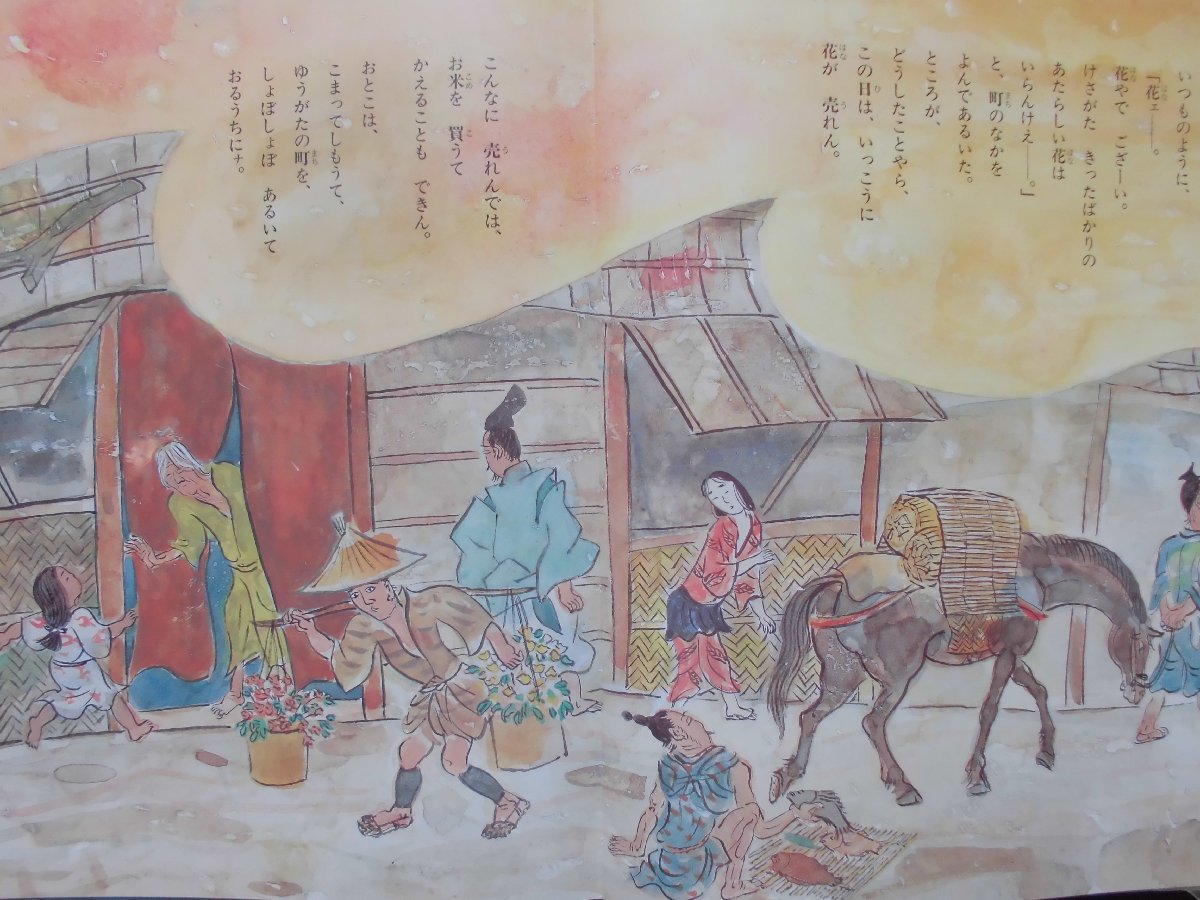 いつものように、
「花ェ――。
花やで　ござーい。
けさがた　きったばかりの
あたらしい花は
いらんけえ――。」
と、町のなかを
よんであるいた。
ところが、
どうしたことやら、
この日は、いっこうに
花が　売れん。
こんなに　売れんでは、
お米を　買うて
かえることも　できん。
おとこは、
こまってしもうて、
ゆうがたの町を、
しょぼしょぼ　あるいて
おるうちにナ。